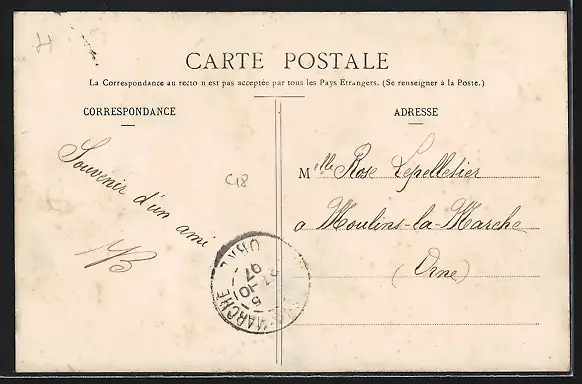 CARTE POSTALE
La Correspondance au recto n'est pas acceptée par tous les Pays Etrangers. (Se renseigner à la Poste.)
CORRESPONDANCE
Souvenir d'un ami
C18
ADRESSE
Melle Rose Lepelletier
a Moulins-la-Marche
(Orne)
MARCHE
ORNE
5
-10
07